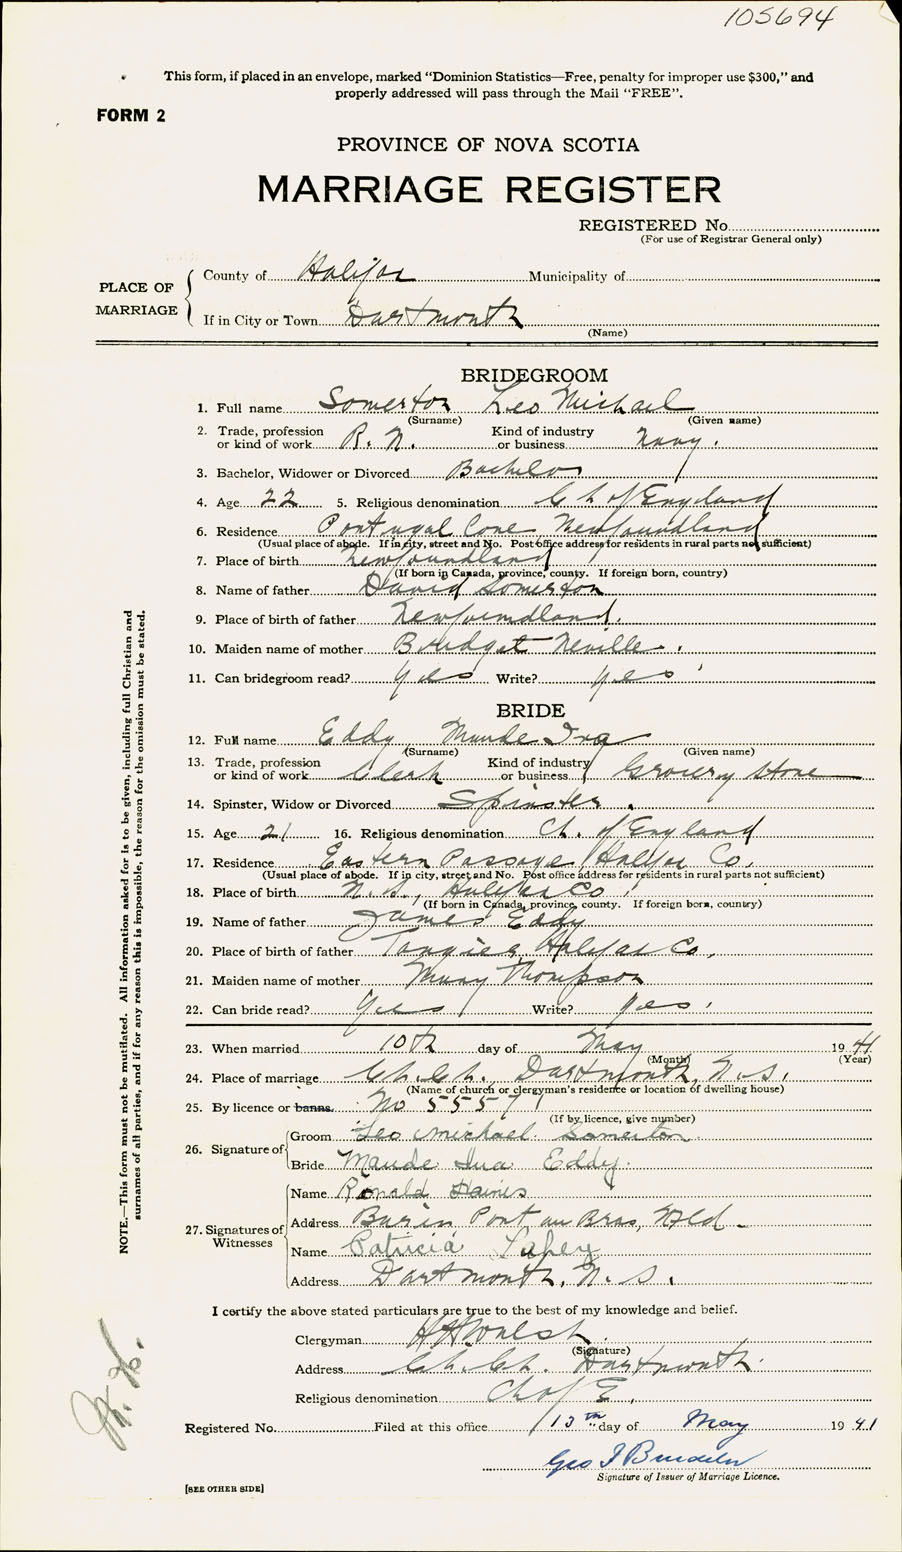 105694
This form, if placed in an envelope, marked “Dominion Statistics—Free, penalty for improper use $300,” and
properly addressed will pass through the Mail “FREE”.
FORM 2
PROVINCE OF NOVA SCOTIA
MARRIAGE REGISTER
REGISTERED No.
(For use of Registrar General only)
PLACE OF MARRIAGE
County of Halifax Municipality of
If in City or Town Dartmouth
(Name)
BRIDEGROOM
1. Full name Somerton Leo Michael
(Surname) (Given name)
2. Trade, profession or kind of work R. N. Kind of industry or business Navy.
3. Bachelor, Widower or Divorced Bachelor
4. Age 22 5. Religious denomination Ch of England
6. Residence Portugal Cove Newfoundland
(Usual place of abode. If in city, street and No. Post office address for residents in rural parts not sufficient)
7. Place of birth Newfoundland
(If born in Canada, province, county. If foreign born, country)
8. Name of father David Somerton
9. Place of birth of father Newfoundland.
10. Maiden name of mother Bridget Neville.
11. Can bridegroom read? yes Write? yes
BRIDE
12. Full name Eddy Maude Ina
(Surname) (Given name)
13. Trade, profession or kind of work Clerk Kind of industry or business Grocery store
14. Spinster, Widow or Divorced Spinster.
15. Age 21 16. Religious denomination Ch. of England
17. Residence Eastern Passage Halifax Co.
(Usual place of abode. If in city, street and No. Post office address for residents in rural parts not sufficient)
18. Place of birth N.S., Halifax Co.
(If born in Canada, province, county. If foreign born, country)
19. Name of father James Eddy
20. Place of birth of father Tangier, Halifax Co.
21. Maiden name of mother Mary Thompson
22. Can bride read? Yes Write? yes.
23. When married 10th day of May 1941
(Month) (Year)
24. Place of marriage Ch. Ch. Dartmouth, N.S.
(Name of church or clergyman's residence or location of dwelling house)
25. By licence or banns. No 55571
(If by licence, give number)
26. Signature of
Groom Leo Michael Somerton
Bride Maude Ina Eddy.
27. Signatures of Witnesses
Name Ronald
Address Burin Port au Bras, Nfld.
Name Patricia
Address Dartmouth, N. S.
I certify the above stated particulars are true to the best of my knowledge and belief.
Clergyman H H Walsh
(Signature)
Address Ch. Ch. Dartmouth.
Religious denomination Ch of E.
Registered No. Filed at this office 13th day of May 1941
Geo
Signature of Issuer of Marriage Licence.
[SEE OTHER SIDE]
NOTE.—This form must not be mutilated. All information asked for is to be given, including full Christian and
surnames of all parties, and if for any reason this is impossible, the reason for the omission must be stated.